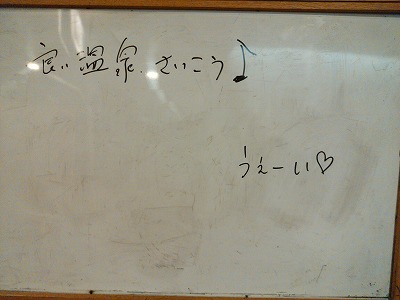 良い温泉.さいこう♪
うぇーい♡